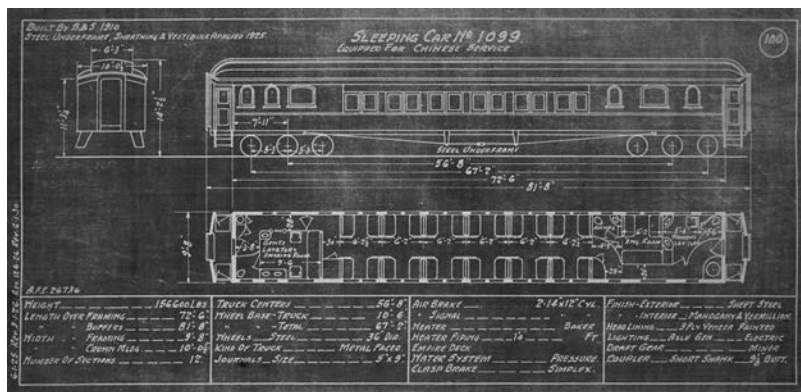 BUILT BY B&S 1910
STEEL UNDERFRAME, SHEATHING & VESTIBULE APPLIED 1925.
SLEEPING CAR Nº 1099
EQUIPPED FOR CHINESE SERVICE.
100
10'-0½"
14'-7½"
7'-11"
5'-3 5'-3
STEEL UNDERFRAME
56'-8"
67'-2"
72'-6"
81'-8"
9'-8"
GENTS LAVATORY
SMOKING ROOM
6'-2 6'-2 6'-2 6'-2
WEIGHT 156600 LBS
LENGTH OVER FRAMING 72'-6"
" " BUFFERS 81'-8"
WIDTH " FRAMING 9'-8"
" " CROWN MLDG 10'-0½"
NUMBER OF SECTIONS 12
TRUCK CENTERS 56'-8"
WHEEL BASE-TRUCK 10'-6"
" " -TOTAL 67'-2"
WHEELS - STEEL 36 DIA.
KIND OF TRUCK METAL FACED
JOURNALS - SIZE 5"x9"
AIR BRAKE 2-14x12" CYL
" SIGNAL
HEATER BAKER
HEATER PIPING FT
EMPIRE DECK
WATER SYSTEM PRESSURE
CLASP BRAKE SIMPLEX.
FINISH-EXTERIOR SHEET STEEL
" -INTERIOR MAHOGANY & VERMILLION
HEADLINING 3 PLY VENEER PAINTED
LIGHTING AXLE GEN ELECTRIC
DRAFT GEAR MINER
COUPLER SHORT SHANK 9⅛ BUTT.